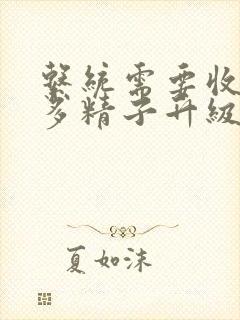 系统需要收
多精子升级
夏如沫